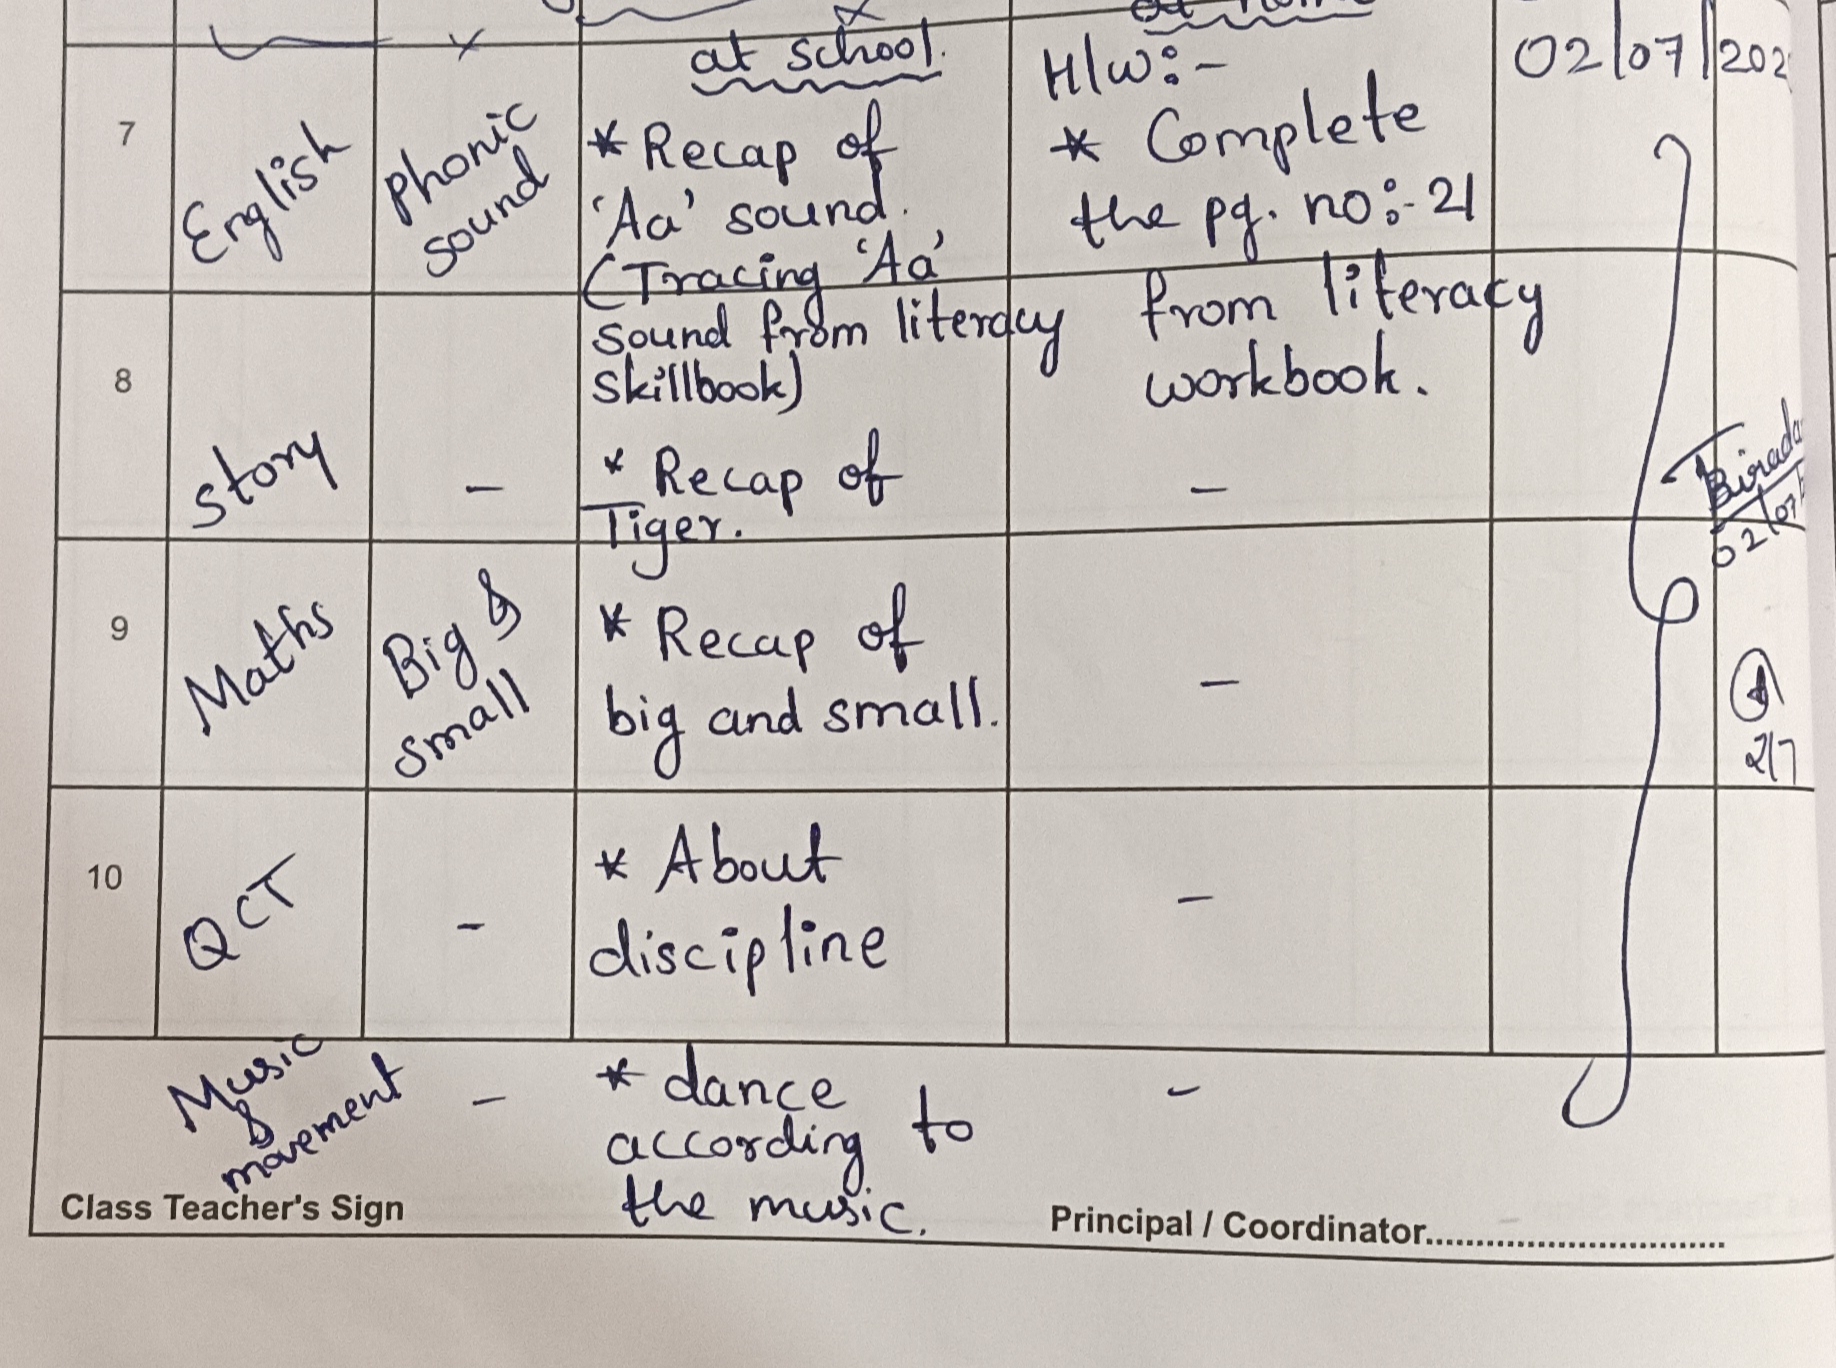 at school.
H/w:-
02/07/202
7
English
phonic
sound
* Recap of
'Aa' sound.
(Tracing 'Aa'
sound from literacy
skillbook)
* Complete
the pg. no:- 21
from literacy
workbook.
8
story
-
* Recap of
Tiger.
-
02/07
9
Maths
Big &
small
* Recap of
big and small.
-
2/7
10
QCT
-
* About
discipline
-
Music
&
movement
-
* dance
according to
the music.
-
Class Teacher's Sign
Principal / Coordinator..............................